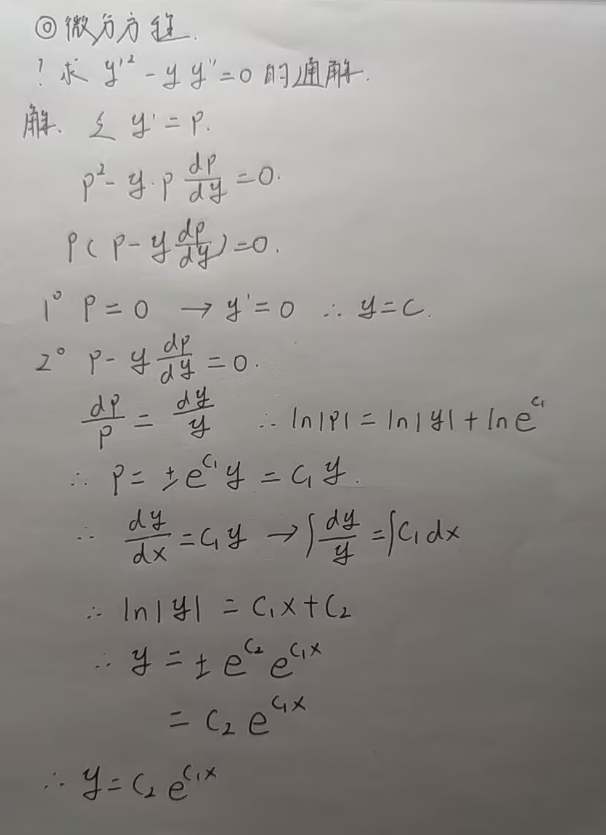 ◎微分方程.
! 求 y'² - y y'' = 0 的通解.
解. 令 y' = p.
p² - y·p dp/dy = 0.
p( p - y dp/dy ) = 0.
1° p = 0 → y' = 0 ∴ y = c.
2° p - y dp/dy = 0.
dp/p = dy/y ∴ ln|p| = ln|y| + ln e^{c₁}
∴ p = ± e^{c₁} y = c₁ y.
∴ dy/dx = c₁ y → ∫ dy/y = ∫ c₁ dx
∴ ln|y| = c₁x + c₂
∴ y = ± e^{c₂} e^{c₁x}
= c₂ e^{c₁x}
∴ y = c₂ e^{c₁x}